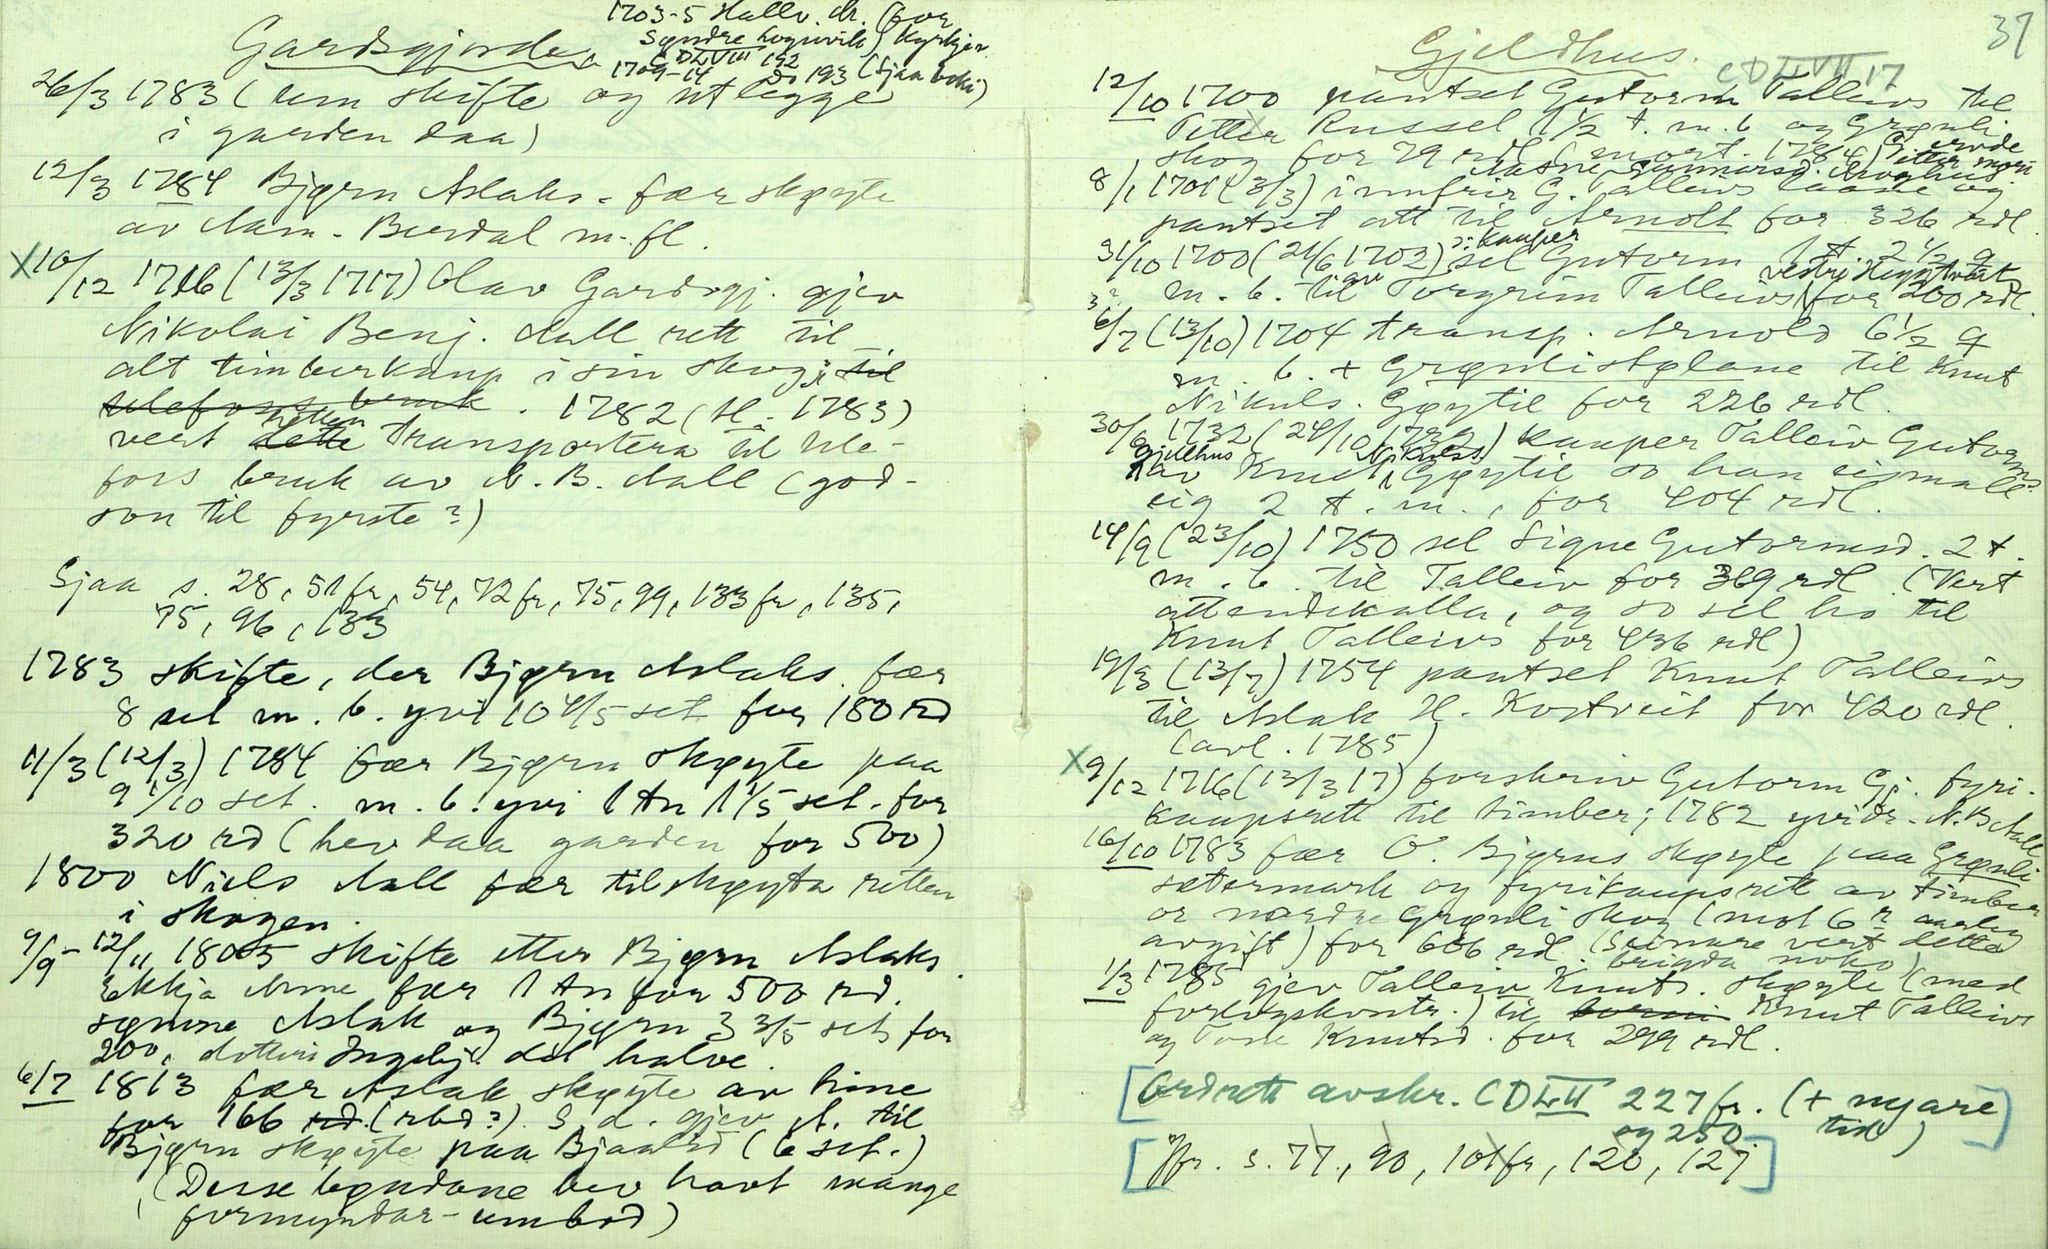 1703-5 Hallv. A. (for
Søndre hognvik) kyrkjer
CDLVIII 192
1709-14 Do 193 (Sjaa boki)
Gardsgjorde
26/3 1783 (um skifte og utlegge
i garden daa)
12/3 1784 Bjørn Aslaks. fær skøyte
av Aam. Burdal m. fl.
X 10/12 1716 (13/3 1717) Olav Gardsgj. gjev
Nikolai Benj. Aall rett til
alt timberkaup i sin skog; til
Ulefoss bruk. 1782 (Al. 1783)
vert dette retten transportera til Ule-
foss bruk av N. B. Aall (god-
son til fyrste?)
Sjaa s. 28, 51 fr, 54, 72 fr, 75, 99, 133 fr, 135,
75, 96, 133
1783 skifte, der Bjørn Aslaks. fær
8 set m. b. yvi 10 4/5 set for 180 rd
11/3 (12/3) 1784 fær Bjørn skøyte paa
9 1/10 set. m. b. yvi 1 tn 1 1/5 set. for
320 rd (hev daa garden for 500)
1800 Niels Aall fær tilskøyta retten
i skogen.
9/9 - 12/11 1805 skifte etter Bjørn Aslaks.
Ekkja Anne fær 1 tn for 500 rd.
sønine Aslak og Bjørn 3 3/5 set for
200, dotteri Ingebj. det halve.
6/7 1813 fær Aslak skøyte av hine
for 166 rd (rbd?). S. d. gjev A. til
Bjørn skøyte paa Bjaalid (6 set.)
(Desse bøndane hev havt mange
formyndar-umbod)
37
Gjeldhus.
CDLVII 17
12/10 1700 pantset Gutorm Talleivs til
Petter Russel 1 1/2 t. m. b og Grønli
skog for 79 rdl (mort. 1784)
8/1 1701 (3/3) innfrir G. Talleivs
pantset att til Arnolt for 326 rdl.
31/10 1700 (21/6 1702) sel Gutorm 1 t. 2 1/2 q
m. b. til Torgrim Talleivs vestre for 200 rdl.
6/7 (13/10) 1704 transp. Arnold 6 1/2 q
m. b. + Grønlistølane til Knut
Nikuls. Gøytil for 226 rdl.
30/6 1732 (24/10 1732) kauper Talleiv Gutorms
Gjelhus av Knut Nikuls. Gøytil so han eismall
eig 2 t. m., for 404 rdl.
14/9 (23/10) 1750 sel Signe Gutormsd. 2 t.
m. b. til Talleiv for 369 rdl. (Vert
attendekalla, og so sel ho til
Knut Talleivs for 436 rdl)
19/3 (13/7) 1754 pantset Knut Talleivs
til Aslak H. Kostveit for 420 rdl.
(avl. 1785)
X 9/12 1716 (13/3 17) forskriv Gutorm Gj. fyri-
kaupsrett til timber; 1782 yvidr. N. B Aall
16/10 1783 fær O. Bjørns skøyte paa Grønli
sætermark og fyrikaupsrett av timber
or nordre Grønli skog (mot 6 r aarleg
avgift) for 606 rdl. (Seinare vert dette
brigda noko)
1/3 1785 gjev Talleiv Knuts. skøyte (med
forlogskontr.) til borni Knut Talleivs
og Tone Knutsd. for 299 rdl.
[Ordrett avskr. CDLII 227 fr. (+ nyare
og 250 tid)]
[Jfr. s. 77, 90, 101 fr, 120, 127]